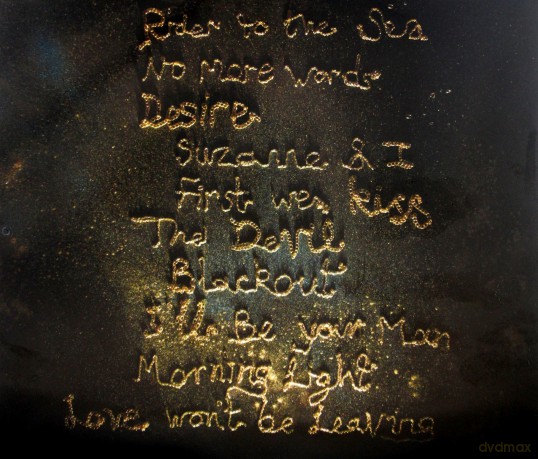 Rider to the Sea
No More Words
Desire
Suzanne & I
First we kiss
The Devil
Blackout
I'll Be your Man
Morning Light
Love won't be Leaving
dvdmax